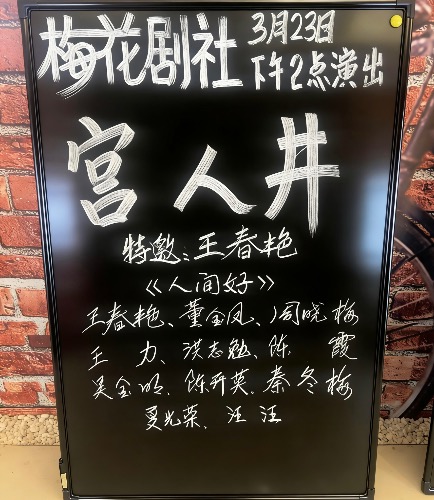 梅花剧社 3月23日
下午2点演出
宫人井
特邀:王春艳
《人间好》
王春艳、董金凤、周晓梅
王 力、洪志勉、陈 霞
吴金明、陈开英、秦冬梅
夏光荣、汪 汪